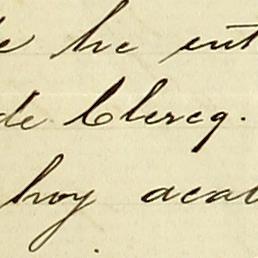 he ent
de Clercq.
hoy aca